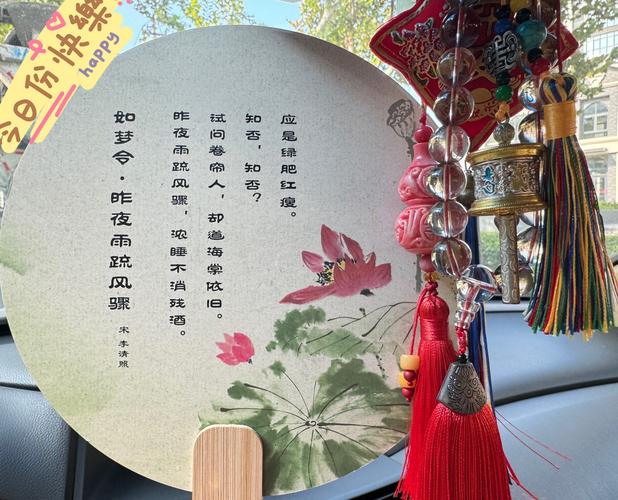 今日份快樂
happy
如梦令·昨夜雨疏风骤
宋 李清照
昨夜雨疏风骤，浓睡不消残酒。
试问卷帘人，却道海棠依旧。
知否，知否？
应是绿肥红瘦。